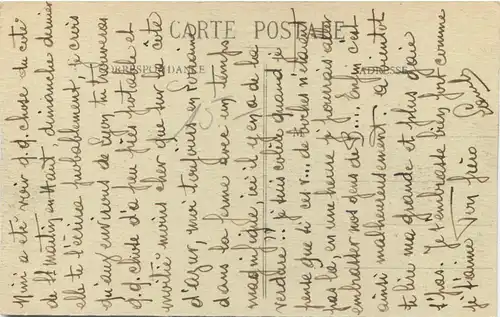 CARTE POSTALE
CORRESPONDANCE
ADRESSE
Mimi a été voir q.q. chose du côté
de St Martin en Haut dimanche dernier
elle te l'écrira probablement, je crois
qu'aux environs de Lyon tu trouveras
q.q. chose d'à peu près potable et
moitié moins cher que sur la côte
d'azur, moi toujours en Lorraine
dans la ferme avec un temps
magnifique, ici il y en a de la
verdure... je suis colère quand je
pense que si ces v... de boches n'étaient
pas là, en une heure je pourrais aller
embrasser nos deux de B.... Enfin c'est
ainsi malheureusement. A bientôt
te lire ma grande et plus gaie
n'has. Je t'embrasse bien fort comme
je t'aime Ton frère
Louis
15